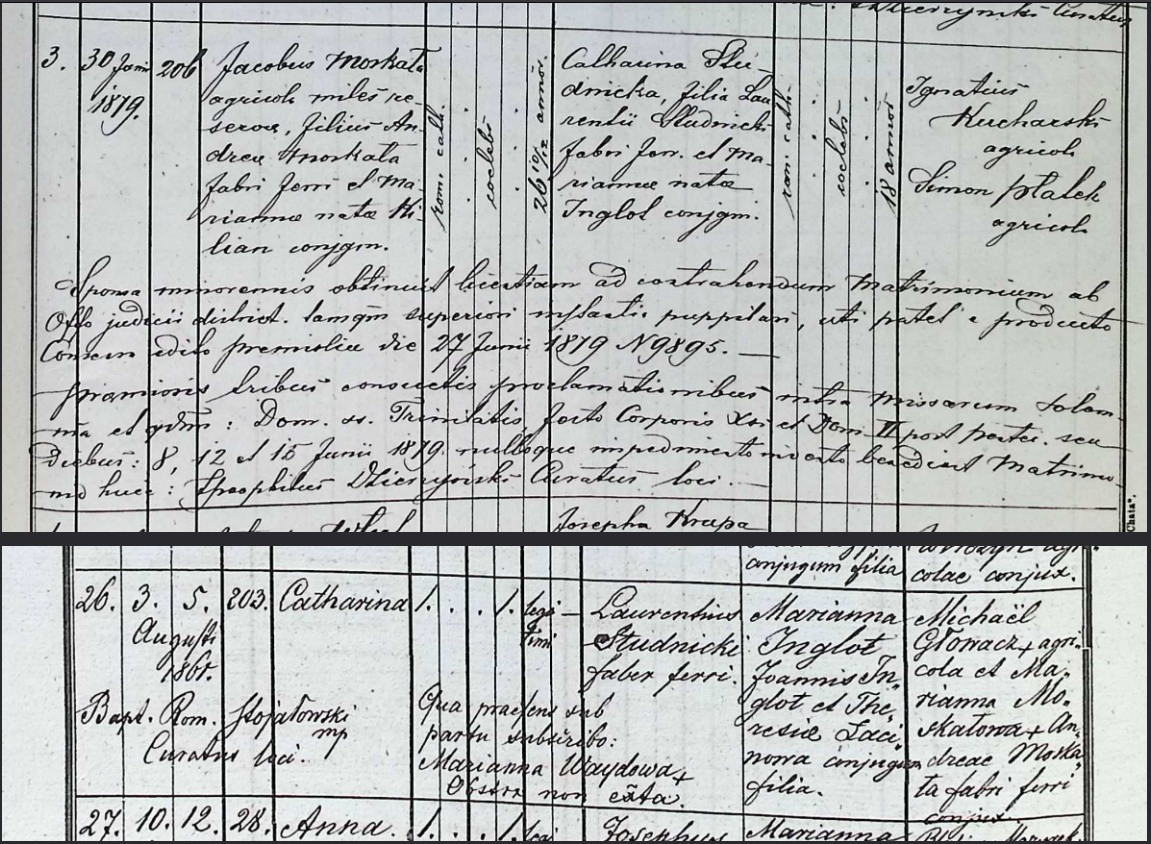 3. 30 Junii 1879. 206
Jacobus Moskata
agricola miles re-
servae, filius An-
dreae Moskata
fabri ferri et Ma-
riannae natae Ki-
lian conjgm.
rom. cath.
coelebs
26 10/12 annor.
Catharina Stu-
dnicka, filia Lau
rentii Studnicki
fabri ferr. et Ma-
riannae natae
Inglot conjgm.
rom. cath.
coelebs
18 annor
Ignatius
Kucharski
agricola
Simon Ptaſek
agricola
Sponsa minorennis obtinuit licentiam ad contrahendum Matrimonium ab
Offo judicii district. tamqm superiori instantia puppilari, uti patet e producto
Consensu edito Premisliae die 27 Junii 1879 N 9895. —
Praemissis tribus consuetis proclamationibus intra Missarum solem-
nia et qdm: Dom. ss. Trinitatis, festo Corporis Xsti et Dom II post Pentec. seu
Diebus: 8, 12 et 15 Junii 1879. nulloque impedimento invento benedixit Matrimo
nio huic: Theophilus Dzierzyński Curatus loci. —
Josepha Krupa
conjugum filia
colae conjux.
26. 3. 5. 203. Catharina 1. . . 1. legi
timi
Augusti
1861.
Laurentius
Studnicki
faber ferri.
Marianna
Inglot
Joannis In-
glot et The-
resiae Laci-
nowa conjugum
filia.
Michaël
Głowacz + agri-
cola et Ma-
rianna Mo-
skatowa + An-
dreae Moska-
ta fabri ferri
conjux.
Bapt. Rom. Stojałowski
mp
Curatus loci.
Qua praesens sub
partu subscribo:
Marianna Waydowa +
Obstra non exata.
27. 10. 12. 28. Anna. 1. . . 1. legi
Josephus
Marianna